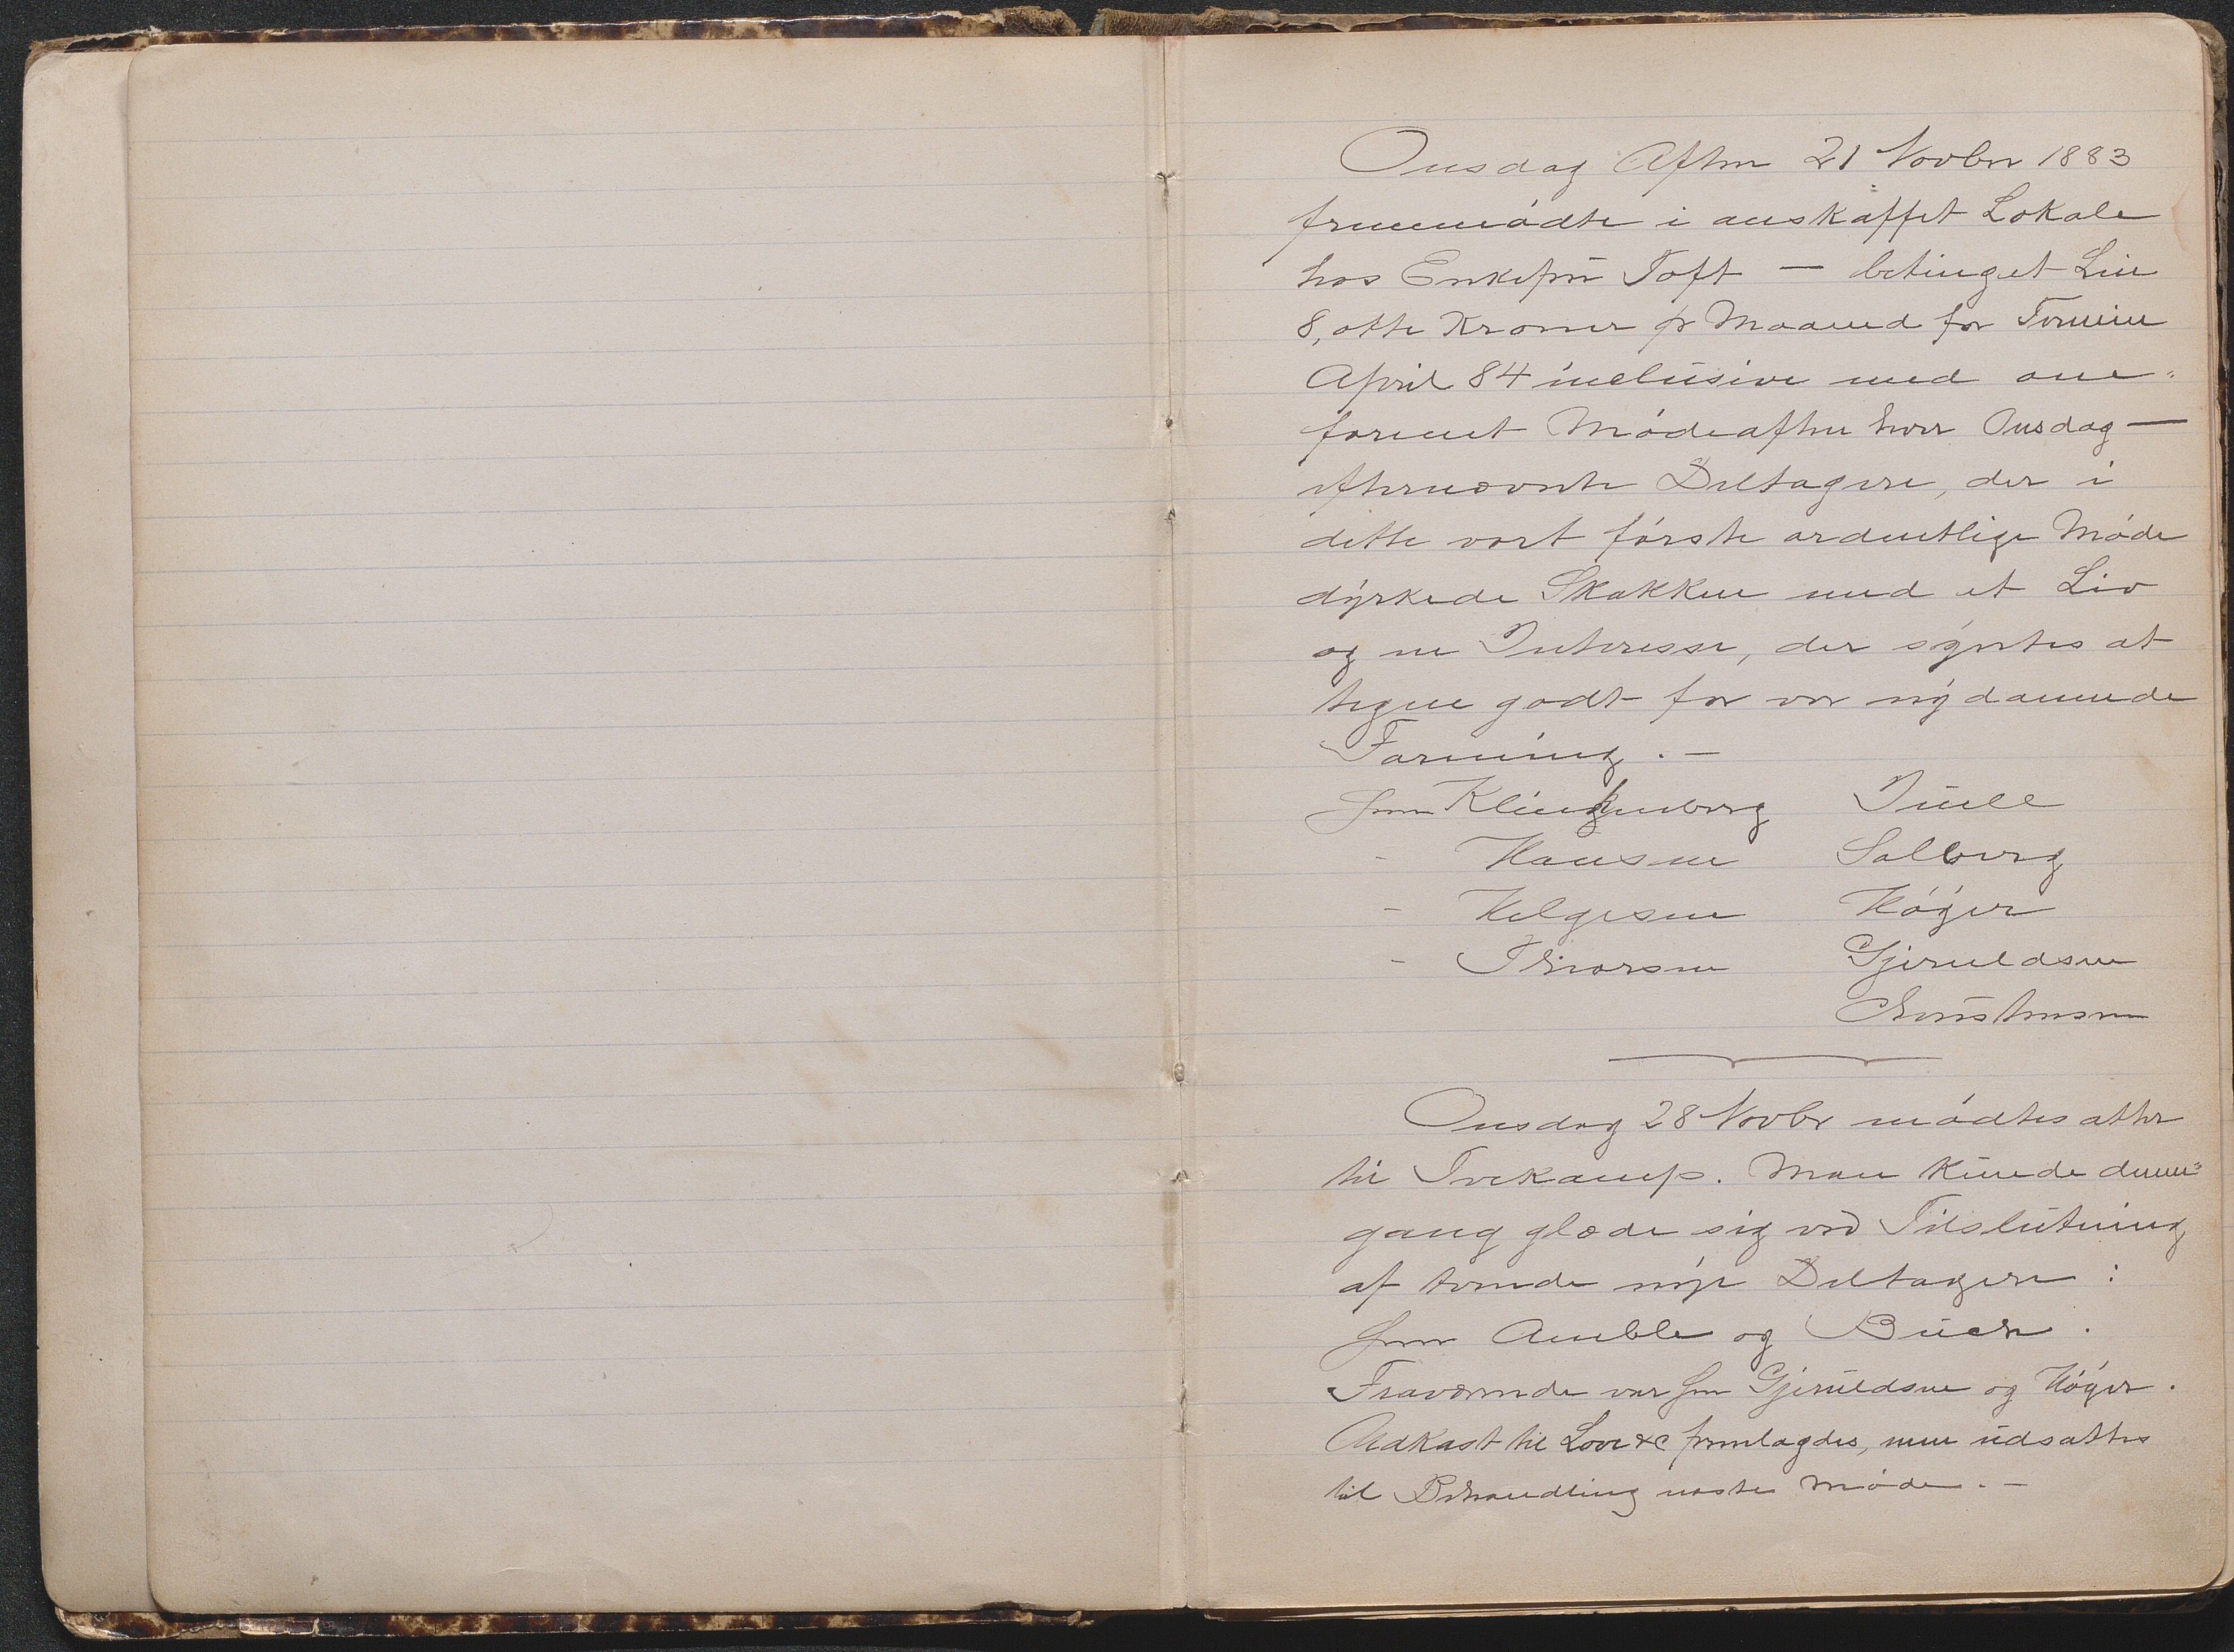 Onsdag Aften 21 Novbr 1883
fremmødte i anskaffet Lokale
hos Enkefru Toft — betinget Leie
8, otte Kroner pr Maaned for Termin
April 84 inclusive med om=
forenet Mødeaften hver Onsdag —
efternævnte Deltagere, der i
dette vort første ordentlige Møde
dyrkede Skakken med et Liv
og en Interesse, der syntes at
tegne godt for vor nydannede
Forening. —
Herr Klingenberg Juell
- Hansen Solberg
- Helgesen Høyer
- Thorsen Gjeruldsen
Christensen
Onsdag 28 Novbr mødtes atter
til Tvekamp. Man kunde denne=
gang glæde sig ved Tilslutning
af tvende nye Deltagere:
Herr Amble og Buch.
Fraværende var Herr Gjeruldsen og Høyer.
Udkast til Love &c fremlagdes, men udsattes
til Behandling næste Møde. —